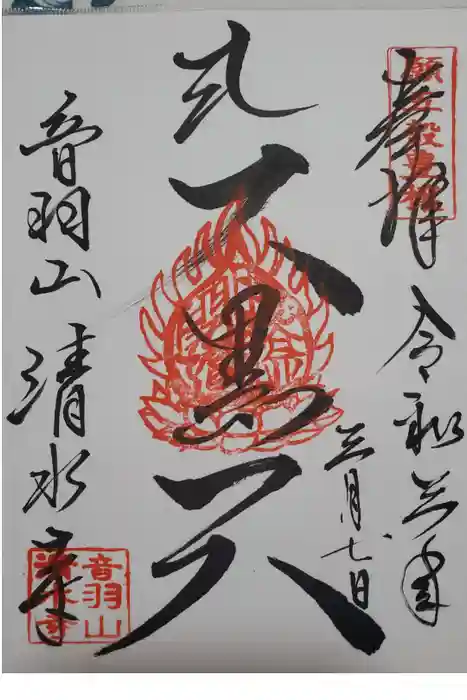 奉拝
令和三年
三月七日
大黒天
音羽山 清水寺
音羽山
清水寺